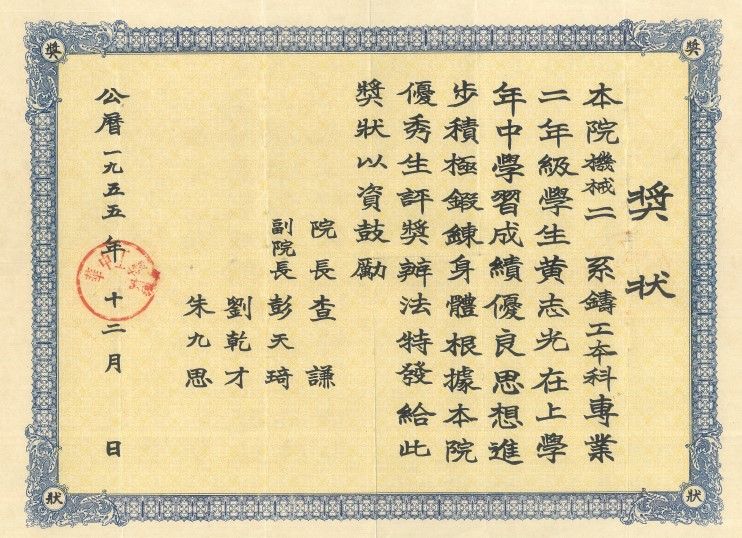 獎狀
本院機械二 系鑄工本科專業
二年級學生黃志光在上學
年中學習成績優良思想進
步積極鍛鍊身體根據本院
優秀生評獎辦法特發給此
獎狀以資鼓勵
院長查 謙
副院長彭天琦
劉乾才
朱九思
公曆一九五五年十二月 日
獎
獎
狀
狀